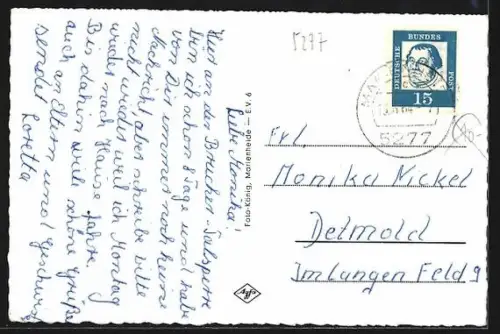 5277
Liebe Monika!
Hier an der Brucher-Talsperre
bin ich schon 8 Tage und habe
von Dir immer noch keine
Nachricht, aber schreibe bitte
nicht wieder weil ich Montag
wieder nach Hause fahre.
Bis dahin viele schöne Grüße
auch an Eltern und Geschwister
sendet Loretta
Foto-König, Marienheide — E.V. 6
Agfa
DEUTSCHE BUNDESPOST
15
5277
Frl.
Monika Nickel
Detmold
Im Langen Feld 9